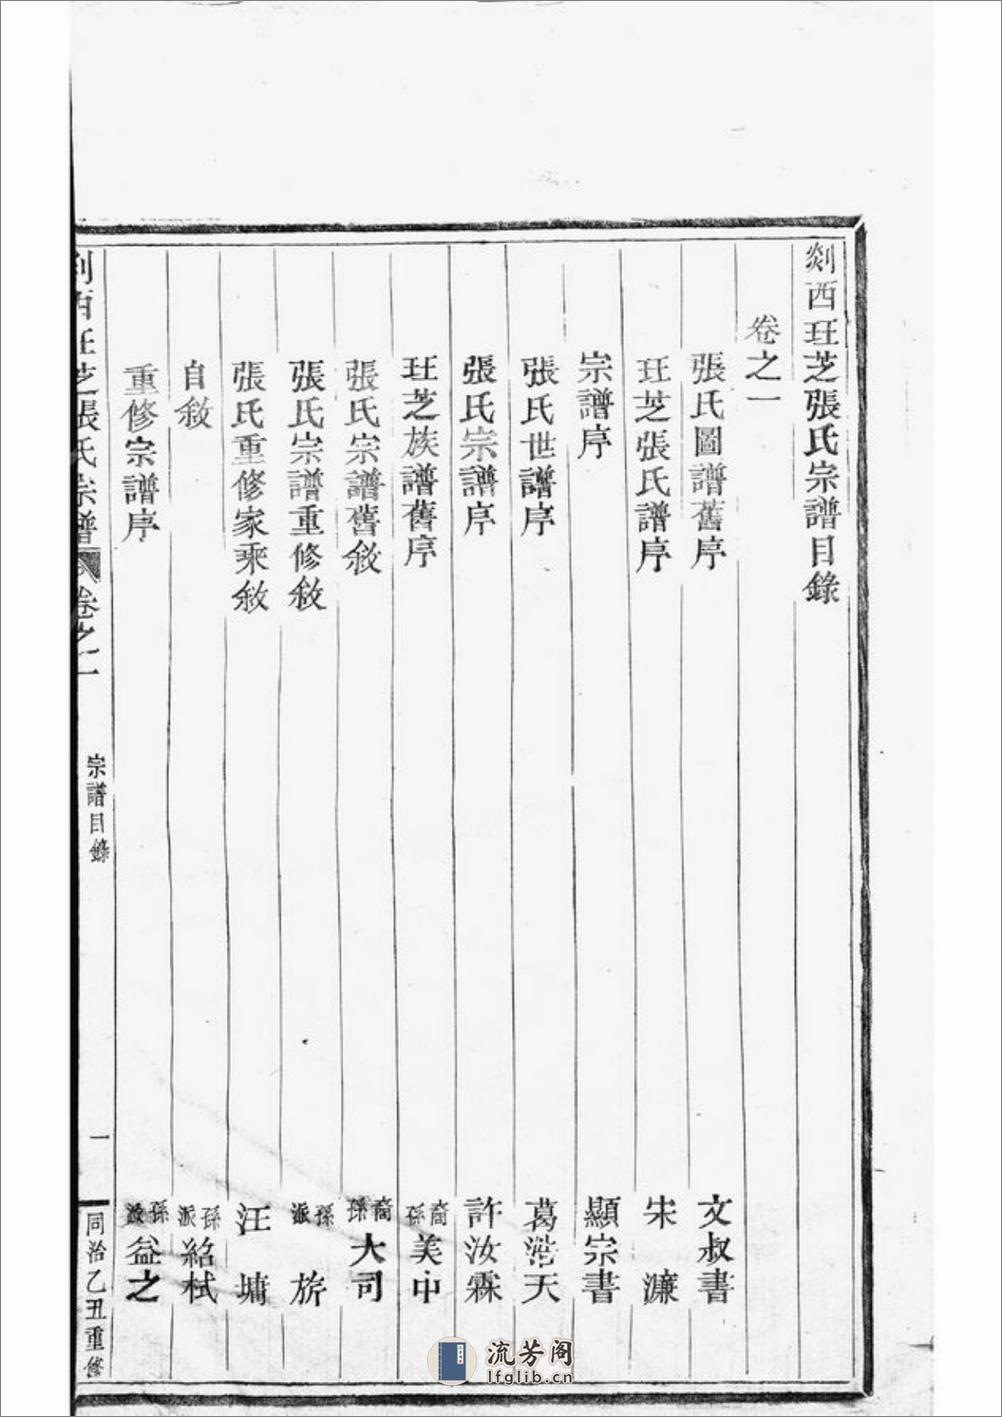 剡西玨芝張氏宗譜目錄
卷之一
張氏圖譜舊序 文叔書
玨芝張氏譜序 宋濂
宗譜序 顯宗書
張氏世譜序 葛浩天
張氏宗譜序 許汝霖
玨芝族譜舊序 裔孫美中
張氏宗譜舊敘 裔孫大司
張氏宗譜重修敘 孫派旂
張氏重修家乘敘 汪墉
自敘 孫派紹栻
重修宗譜序 孫派益之
剡西玨芝張氏宗譜 卷之一 宗譜目錄 一 同治乙丑重修
流芳阁
lfglib.cn